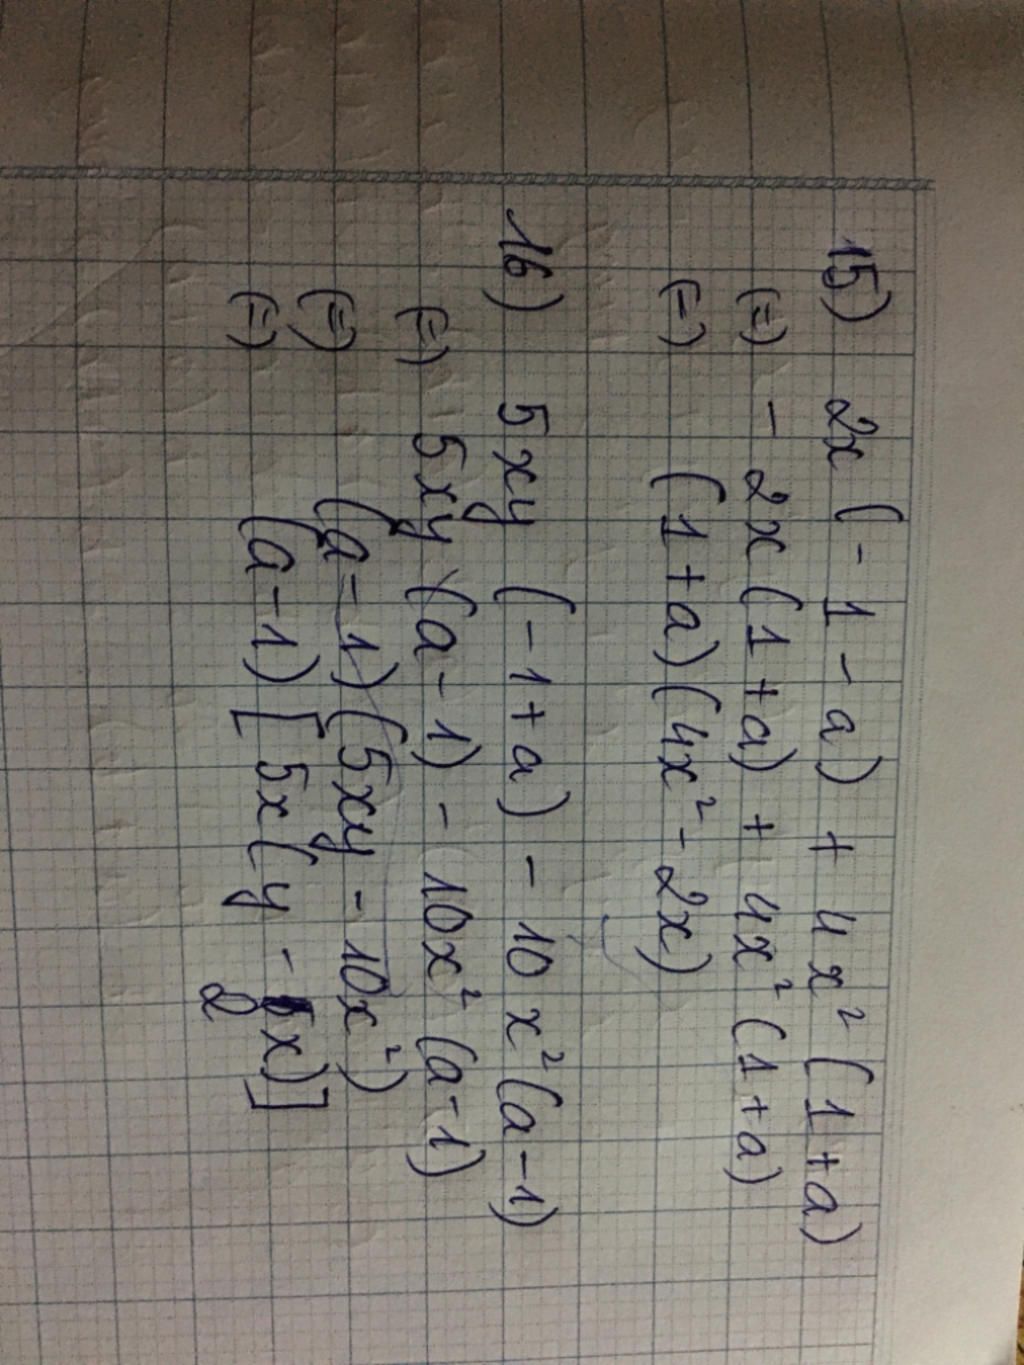 15) 2x (-1-a) + 4x² (1+a)
(=) -2x (1+a) + 4x² (1+a)
(=) (1+a) (4x² - 2x)
16) 5xy (-1+a) - 10x² (a-1)
(=) 5xy (a-1) - 10x² (a-1)
(=) (a-1) (5xy - 10x²)
(=) (a-1) [5x (y - 2x)]